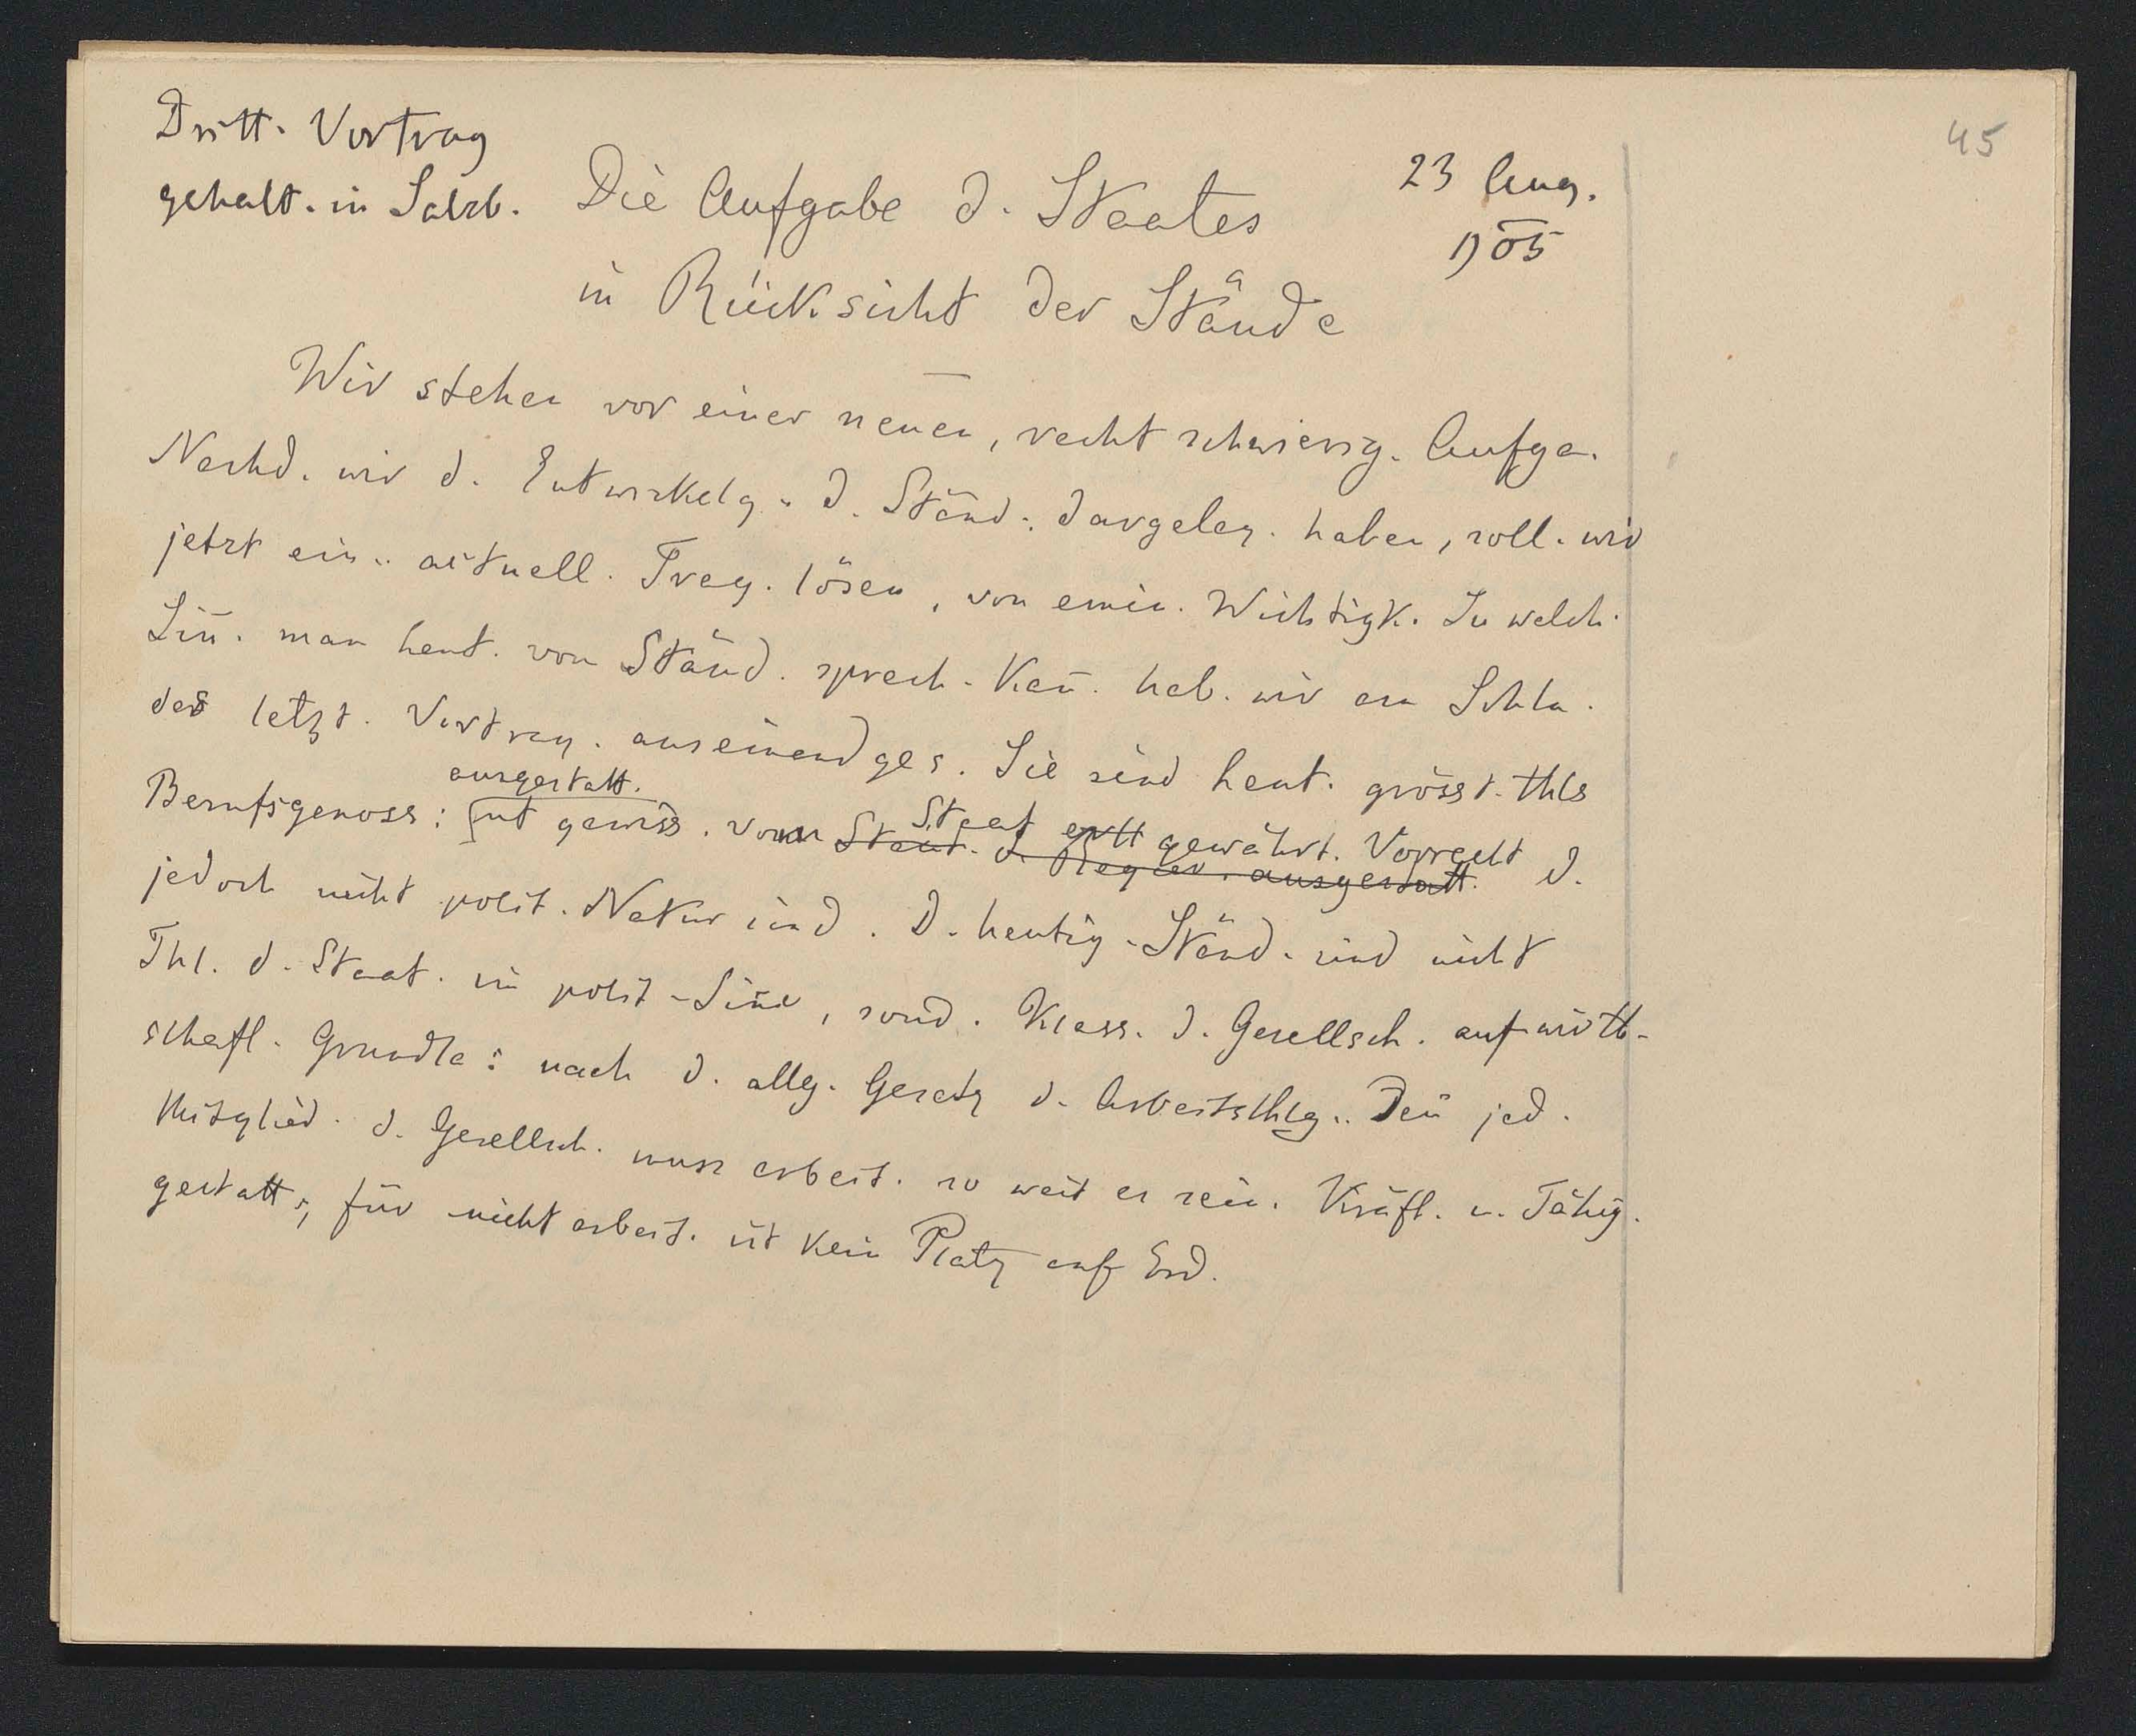 45
Dritt. Vortrag
gehalt. in Salzb.
23 Aug.
1905
Die Aufgabe d. Staates
in Rücksicht der Stände
Wir stehen vor einer neuen, recht schwierig. Aufga.
Nachd. wir d. Entwickelg. d. Ständ. dargeleg. haben, soll. wir
jetzt ein. aktuell. Frag. lösen, von emin. Wichtigk. In welch.
Sin̄. man heut. von Ständ. sprech. kan̄. hab. wir am Schlu.
des letzt. Vortrag. auseinandges. Sie sind heut. grösst. Thls
ausgestatt.
Berufsgenoss: mit gewiss. vom Staat gewährt. Vorrecht d.
Staat. d. Regier. ausgestatt.
jedoch nicht polit. Natur sind. D. heutig. Ständ. sind nicht
Thl. d. Staat. im polit. Sin̄e, sond. Klass. d. Gesellsch. auf wirth-
schaftl. Grundla: nach d. allg. Gesetz d. Arbeitsthlg.. Den̄ jed.
Mitglied. d. Gesellsch. muss arbeit. so weit es sein. Kräft. u. Fähig.
gestatt., für nicht arbeit. ist kein Platz auf Erd.